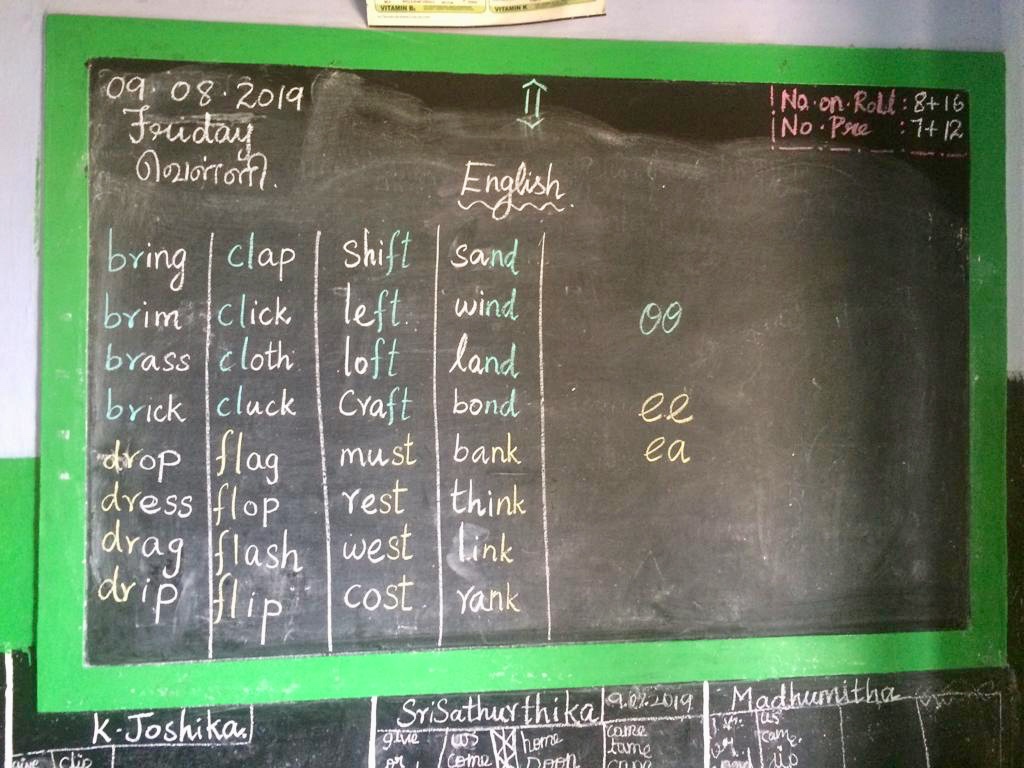 VITAMIN B₆ VITAMIN K
09.08.2019
Friday
வெள்ளி.
No. on. Roll : 8+16
No. Pre : 7+12
English
bring clap shift sand
brim click left wind
brass cloth loft land
brick cluck craft bond
drop flag must bank
dress flop rest think
drag flash west link
drip flip cost rank
oo
ee
ea
K. Joshika.
clip
Sri Sathurthika
give
or
come
home
came
tame
Madhumitha
as
came.